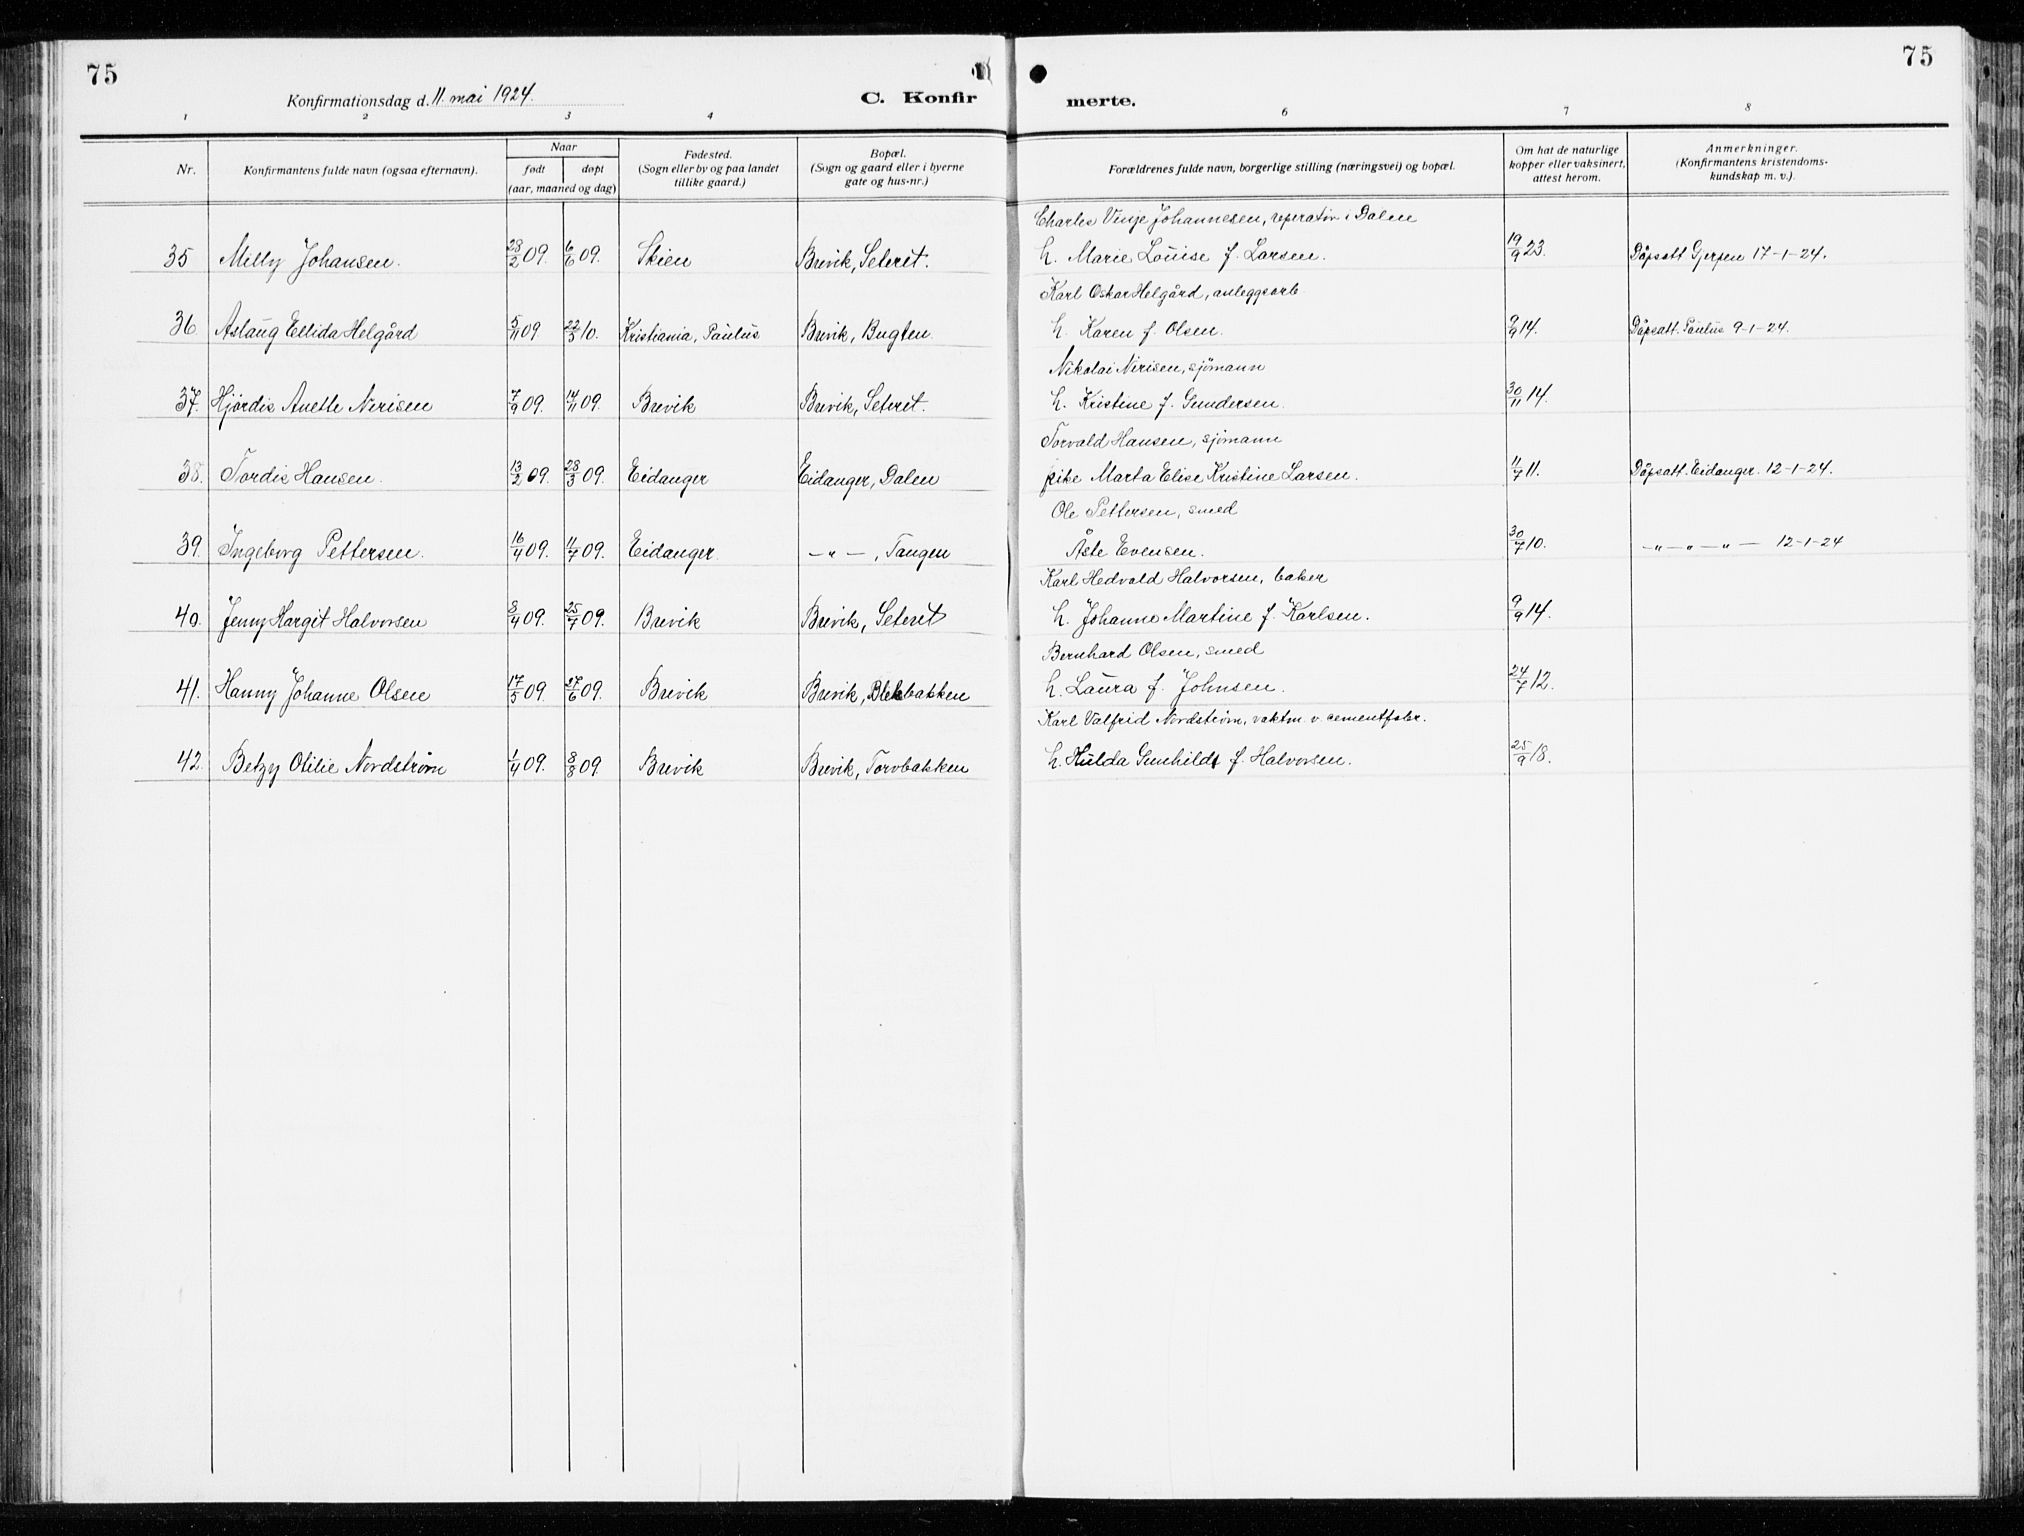 75
75
Konfirmationsdag d. 11. mai 1924.
C. Konfirmerte.
1 2 3 4 6 7 8
Nr.
Konfirmantens fulde navn (ogsaa efternavn).
Naar
født døpt
(aar, maaned og dag)
Fødested.
(Sogn eller by og paa landet
tillike gaard.)
Bopæl.
(Sogn og gaard eller i byerne
gate og hus-nr.)
Forældrenes fulde navn, borgerlige stilling (næringsvei) og bopæl.
Om hat de naturlige
kopper eller vaksinert,
attest herom.
Anmerkninger.
(Konfirmantens kristendoms-
kundskap m. v.).
Charles Vinje Johannesen, reperatør i Dalen
35 Milly Johansen. 28/2 09. 6/6 09. Skien Brevik, Seteret. h. Marie Louise f. Larsen. 19/9 23. Dåpsatt Gjerpen 17-1-24.
Karl Oskar Helgård, anleggsarb.
36 Aslaug Ellida Helgård 5/11 09. 22/3 10. Kristiania, Paulus Brevik, Bugten. h. Karen f. Olsen. 9/9 14. Dåpsatt. Paulus 9-1-24.
Nikolai Nirisen, sjømann
37. Hjørdis Anette Nirisen 7/9 09. 14/11 09. Brevik Brevik, Seteret. h. Kristine f. Gundersen. 30/11 14.
Torvald Hansen, sjømann
38. Tordis Hansen. 13/2 09. 28/3 09. Eidanger Eidanger, Dalen pike Marta Elise Kristine Larsen. 11/7 11. Dåpsatt. Eidanger. 12-1-24.
Ole Pettersen, smed
39. Ingeborg Pettersen. 16/4 09. 11/7 09. Eidanger —„—, Tangen Åste Evensen. 30/7 10. —„—„—„— 12-1-24
Karl Hedvald Halvorsen, baker
40. Jenny Margit Halvorsen 8/4 09. 25/7 09. Brevik Brevik, Seteret h. Johanne Martine f. Karlsen. 9/9 14.
Bernhard Olsen, smed
41. Hanny Johanne Olsen 17/5 09 27/6 09. Brevik Brevik, Blekbakken h. Laura f. Johnsen. 24/7 12.
Karl Valfrid Nordstrøm, vaktm. v. cementfabr.
42. Betzy Otilie Nordstrøm 1/4 09. 8/8 09. Brevik Brevik, Torvbakken h. Hulda Gunhild f. Halvorsen. 25/9 18.